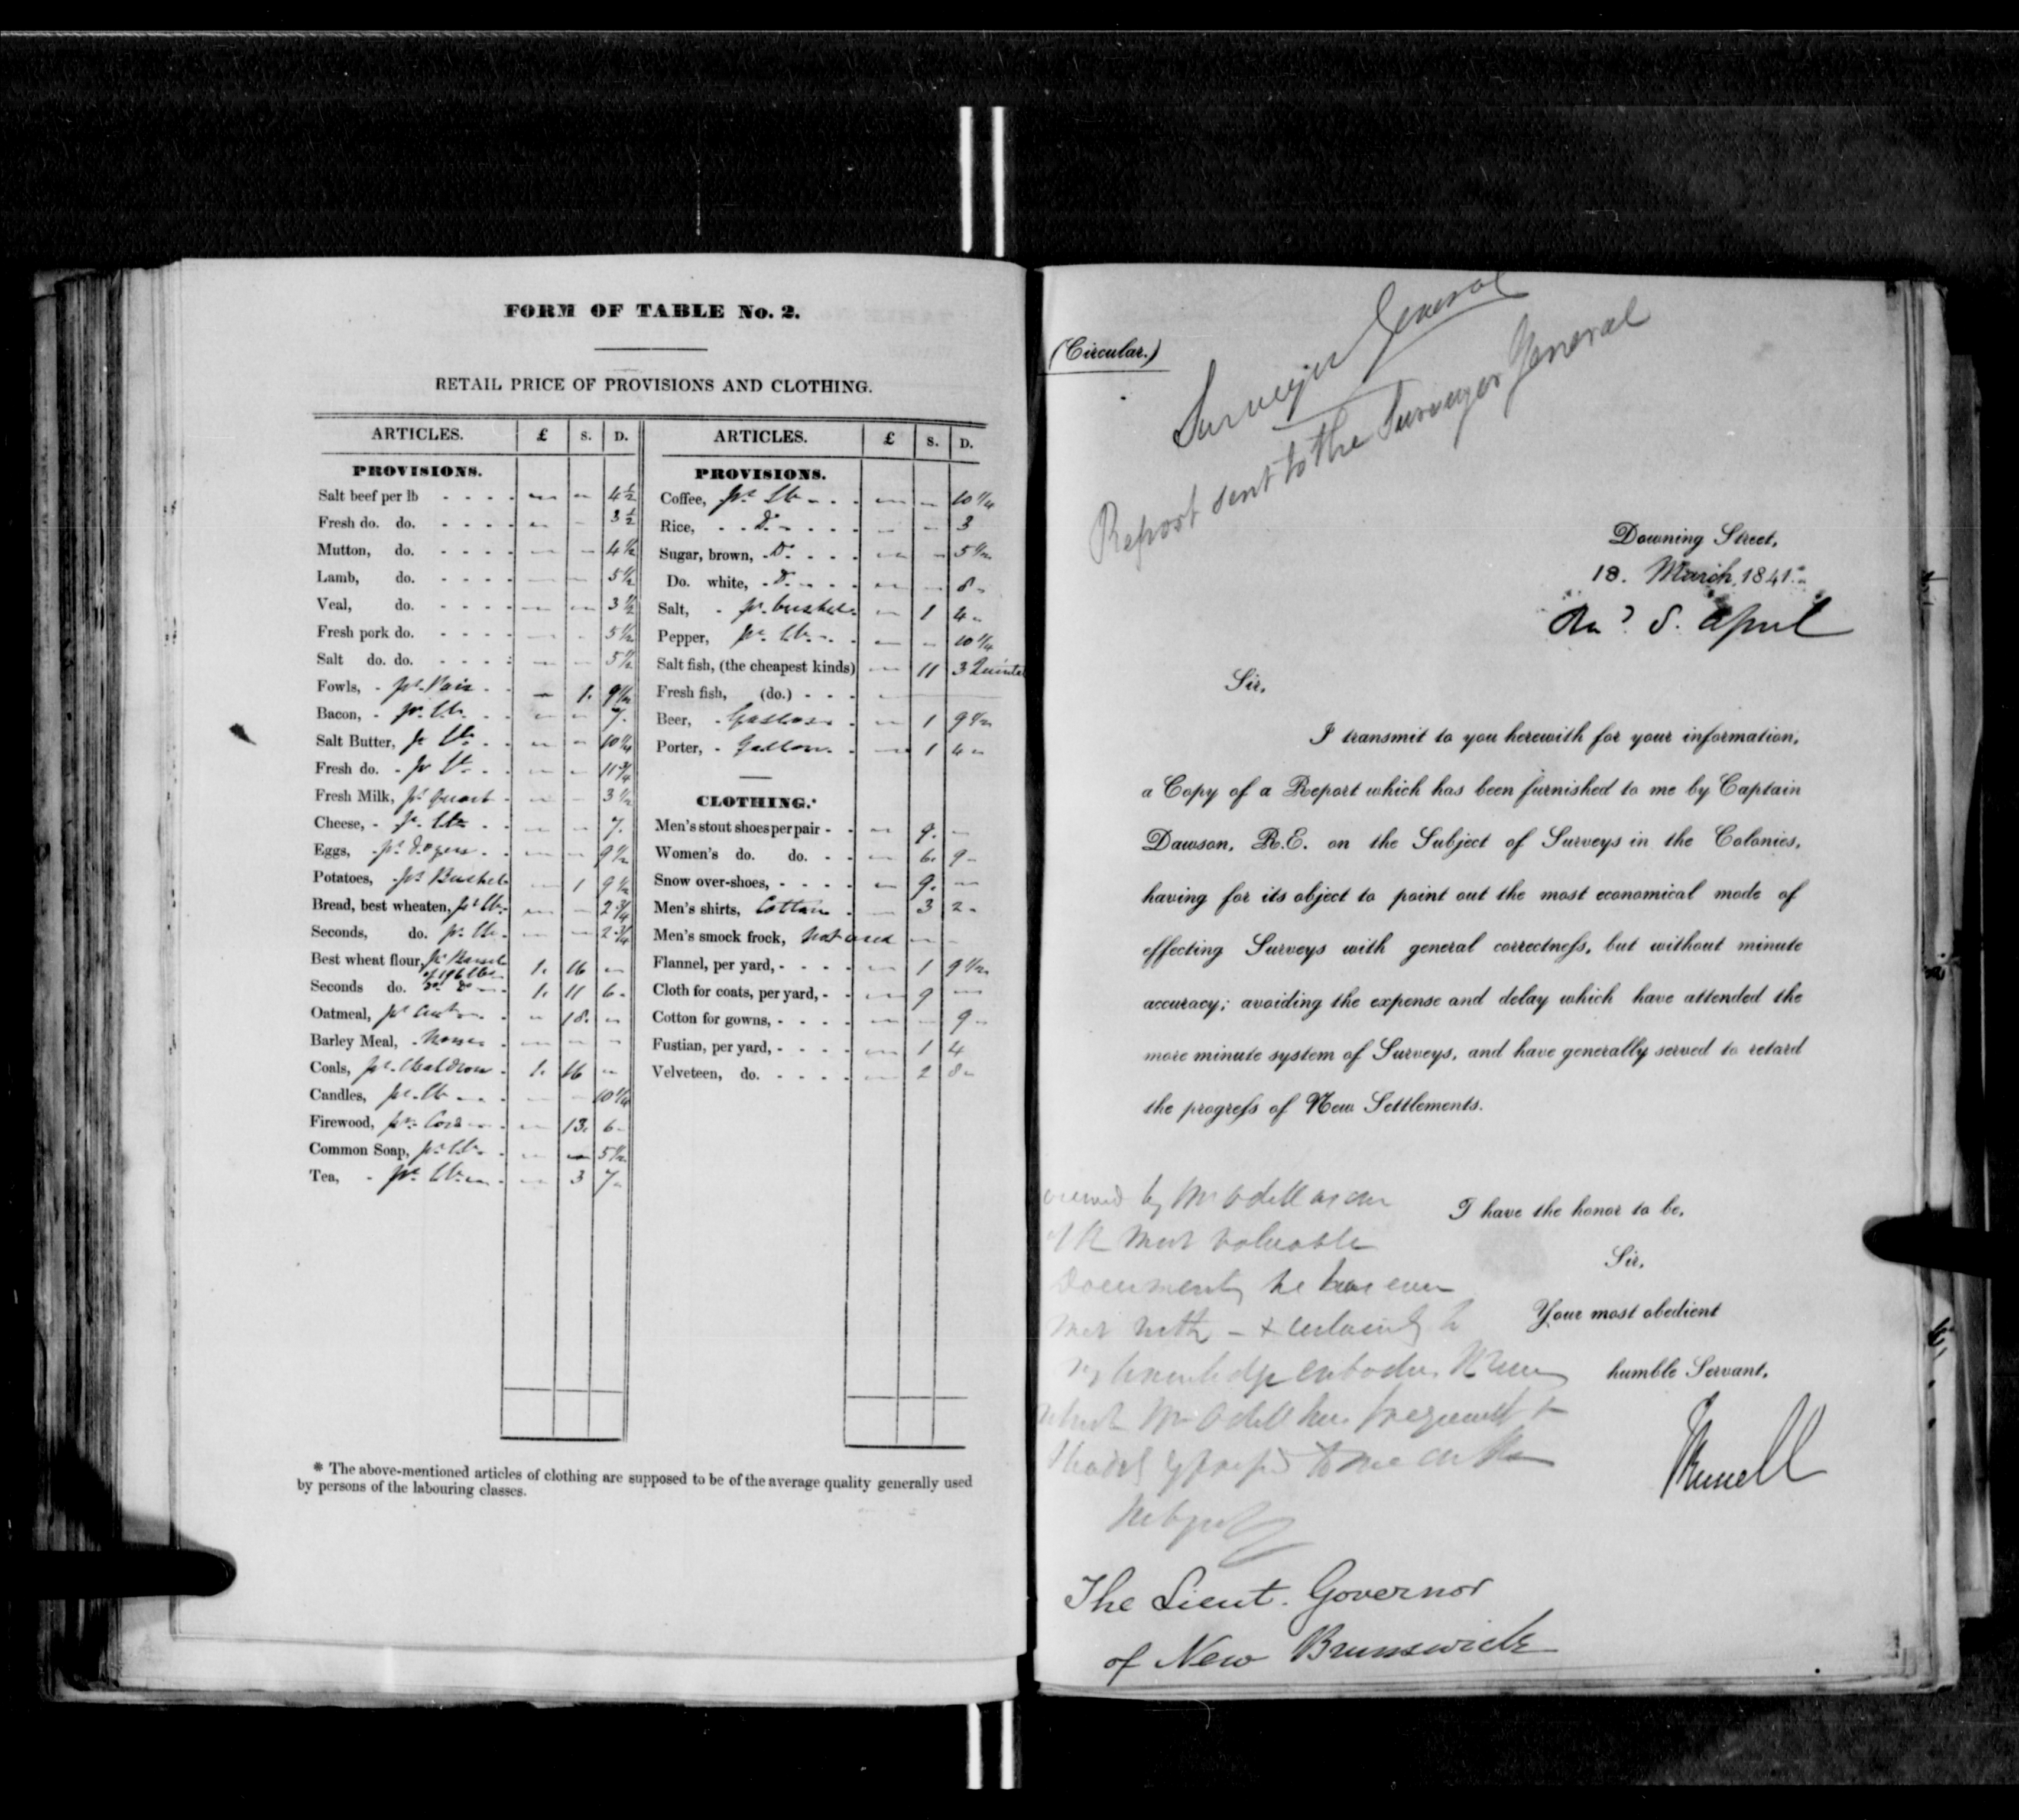 FORM OF TABLE No. 2.
RETAIL PRICE OF PROVISIONS AND CLOTHING.
ARTICLES. £ S. D.
PROVISIONS.
Salt beef per lb - - - - — — 4½
Fresh do. do. - - - - — — 3½
Mutton, do. - - - - — — 4½
Lamb, do. - - - - — — 5½
Veal, do. - - - - — — 3½
Fresh pork do. - - - - — — 5½
Salt do. do. - - - - — — 5½
Fowls, - pr. Pair - - — 1. 9½
Bacon, - pr. lb. - - — — 7.
Salt Butter, pr lb. - — — 10¼
Fresh do. - pr lb. - - — — 11¾
Fresh Milk, pr. quart - — — 3½
Cheese, - pr. lb. - - — — 7.
Eggs, - pr. dozen - - — — 9½
Potatoes, pr. Bushel — 1 9½
Bread, best wheaten, pr lb. — — 2¾
Seconds, do. pr. lb. — — 2¾
Best wheat flour, pr. Barrel of 196 lbs. 1. 16 —
Seconds do. do. do. — 1. 11 6.
Oatmeal, pr. — 18. —
Barley Meal, - None - — — —
Coals, pr. Chaldron - 1. 16 —
Candles, pr. lb. - - — — 10¼
Firewood, pr. Cord - — 13. 6.
Common Soap, pr. lb. - — — 5½
Tea, - pr. lb. — — 3 7.
ARTICLES. £ S. D.
PROVISIONS.
Coffee, pr. lb. - - — — 10¼
Rice, - - Do. - - - - — — 3
Sugar, brown, - Do. - - - — — 5½
Do. white, - Do. - - - — — 8.
Salt, - pr. bushel — 1 4.
Pepper, pr. lb. - - — — 10¼
Salt fish, (the cheapest kinds) — 11 3 Quintal
Fresh fish, (do.) - - - —
Beer, - Gallon - — 1 9½
Porter, - Gallon - — 1 4.
CLOTHING.*
Men's stout shoes per pair - - — 9. —
Women's do. do. - - — 6. 9.
Snow over-shoes, - - - - — 9. —
Men's shirts, Cotton - — 3 2.
Men's smock frock, not used — —
Flannel, per yard, - - - - — 1 9½
Cloth for coats, per yard, - - — 9 —
Cotton for gowns, - - - - — — 9.
Fustian, per yard, - - - - — 1 4
Velveteen, do. - - - - — 2 8.
* The above-mentioned articles of clothing are supposed to be of the average quality generally used
by persons of the labouring classes.
(Circular.)
Surveyor General
Report sent to the Surveyor General
Downing Street,
18. March, 1841.
8. April
Sir,
I transmit to you herewith for your information,
a Copy of a Report which has been furnished to me by Captain
Dawson, R.E. on the Subject of Surveys in the Colonies,
having for its object to point out the most economical mode of
effecting Surveys with general correctness, but without minute
accuracy; avoiding the expense and delay which have attended the
more minute system of Surveys, and have generally served to retard
the progress of New Settlements.
I have the honor to be,
Sir,
Your most obedient
humble Servant,
JRussell
by Mr Odell as one
most valuable
Documents he has ever
met with - &
knowledge embodies
which Mr Odell has frequently
to me on the
subject
The Lieut. Governor
of New Brunswick